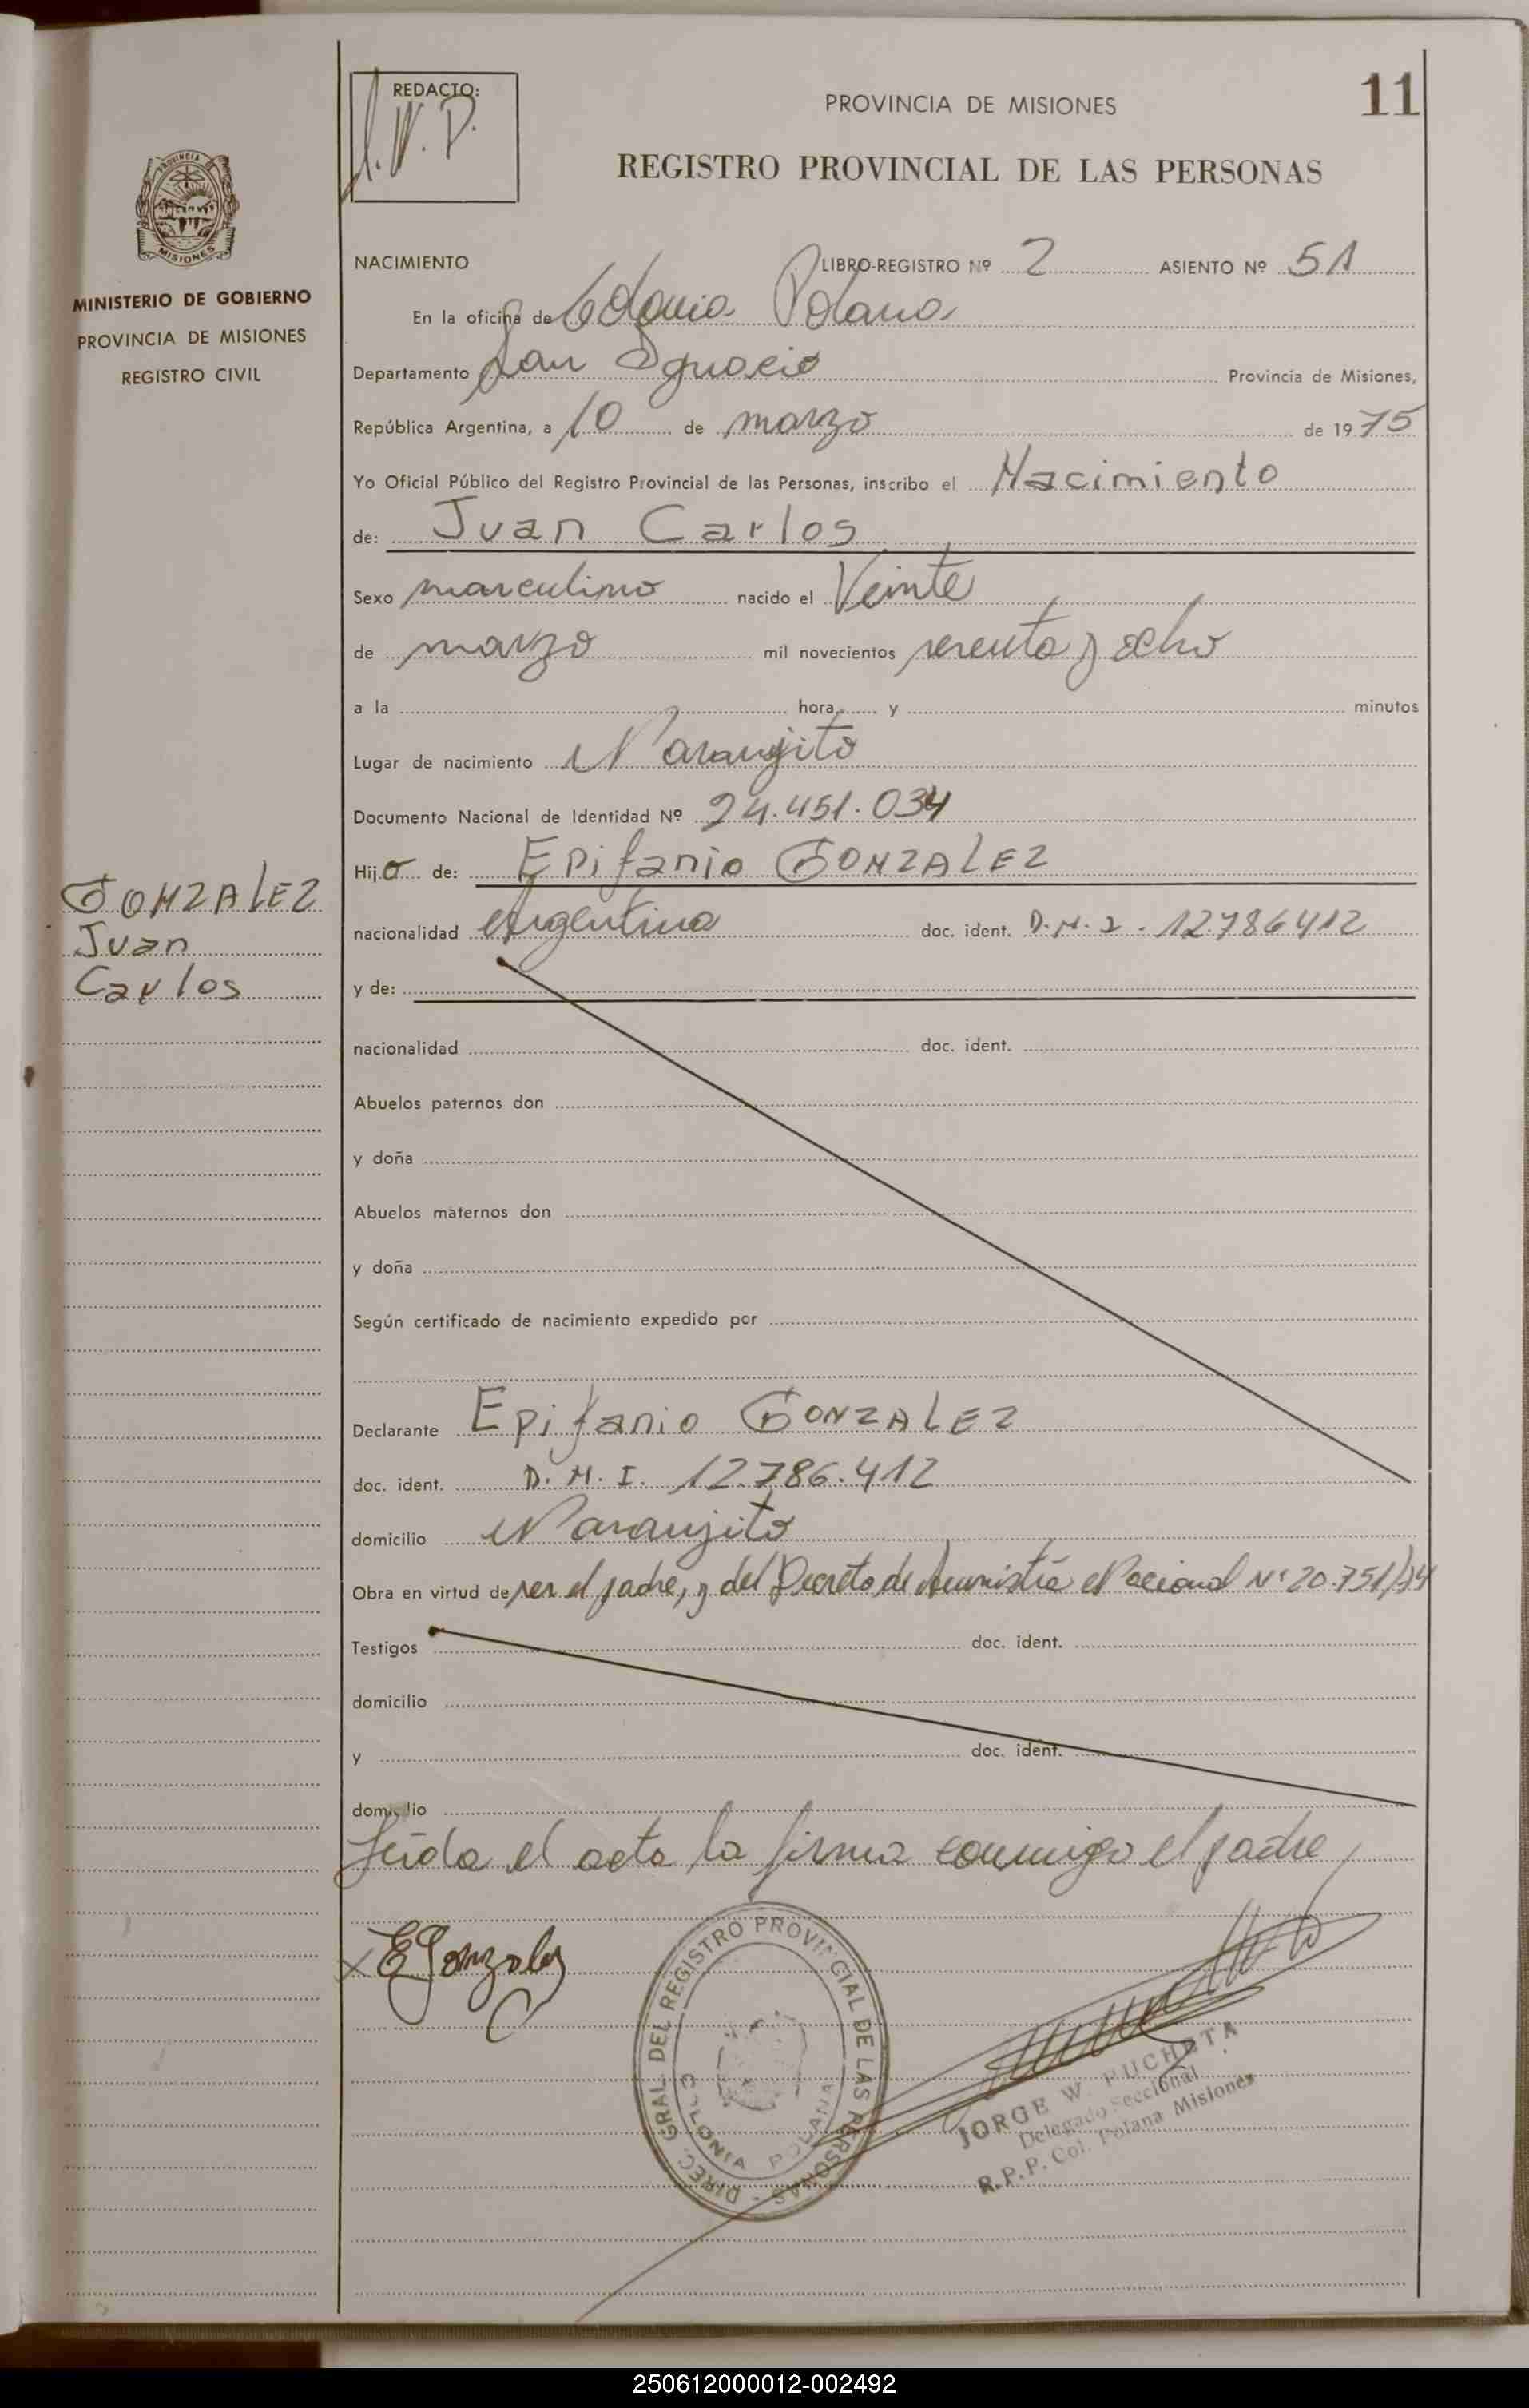 REDACTO:
J.W.P.
PROVINCIA DE MISIONES
11
REGISTRO PROVINCIAL DE LAS PERSONAS
PROVINCIA DE
MISIONES
MINISTERIO DE GOBIERNO
PROVINCIA DE MISIONES
REGISTRO CIVIL
NACIMIENTO LIBRO-REGISTRO Nº 2 ASIENTO Nº 51
En la oficina de Colonia Polana
Departamento San Ignacio Provincia de Misiones,
República Argentina, a 10 de marzo de 1975
Yo Oficial Público del Registro Provincial de las Personas, inscribo el Nacimiento
de: Juan Carlos
Sexo masculino nacido el Veinte
de marzo mil novecientos sesenta y ocho
a la hora y minutos
Lugar de nacimiento Naranjito
Documento Nacional de Identidad Nº 24.451.034
Hijo de: Epifanio GONZALEZ
nacionalidad Argentina doc. ident. D.N.I. 12786412
GONZALEZ
Juan
Carlos
y de:
nacionalidad doc. ident.
Abuelos paternos don
y doña
Abuelos maternos don
y doña
Según certificado de nacimiento expedido por
Declarante Epifanio GONZALEZ
doc. ident. D.N.I. 12.786.412
domicilio Naranjito
Obra en virtud de ser el padre, y del Decreto de Amnistía Nacional Nº 20.751/74
Testigos doc. ident.
domicilio
y doc. ident.
domicilio
Leída el acta la firma conmigo el padre
x EGonzalez
DIREC. GRAL. DEL REGISTRO PROVINCIAL DE LAS PERSONAS -
COLONIA POLANA
JORGE W. PUCHETA
Delegado Seccional
R.P.P. Col. Polana Misiones
250612000012-002492